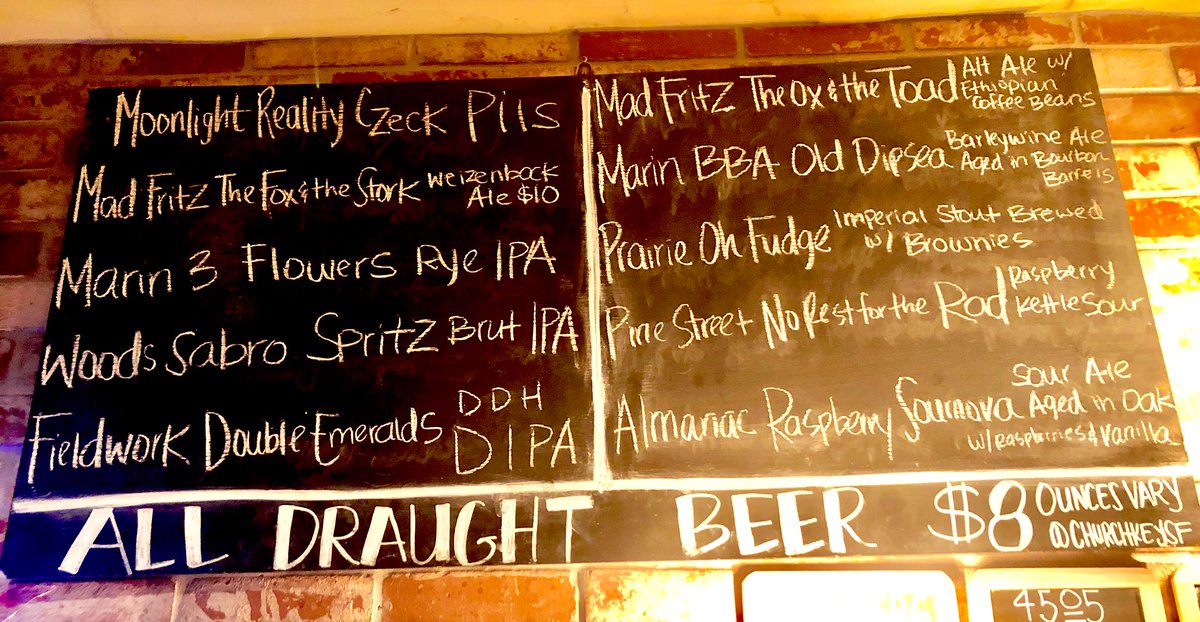 Moonlight Reality Czeck Pils
Mad Fritz The Fox & the Stork Weizenbock
Ale $10
Marin 3 Flowers Rye IPA
Woods Sabro Spritz Brut IPA
Fieldwork Double Emeralds DDH
DIPA
Mad Fritz The Ox & the Toad Alt Ale w/
Ethiopian
Coffee Beans
Marin BBA Old Dipsea Barleywine Ale
Aged in Bourbon
Barrels
Prairie Oh Fudge Imperial Stout Brewed
w/ Brownies
Pine Street No Rest for the Rad Raspberry
Kettle Sour
Almanac Raspberry Sournova Sour Ale
Aged in Oak
w/ Raspberries & Vanilla
ALL DRAUGHT BEER $8 OUNCES VARY
@CHURCHKEYSF
4505